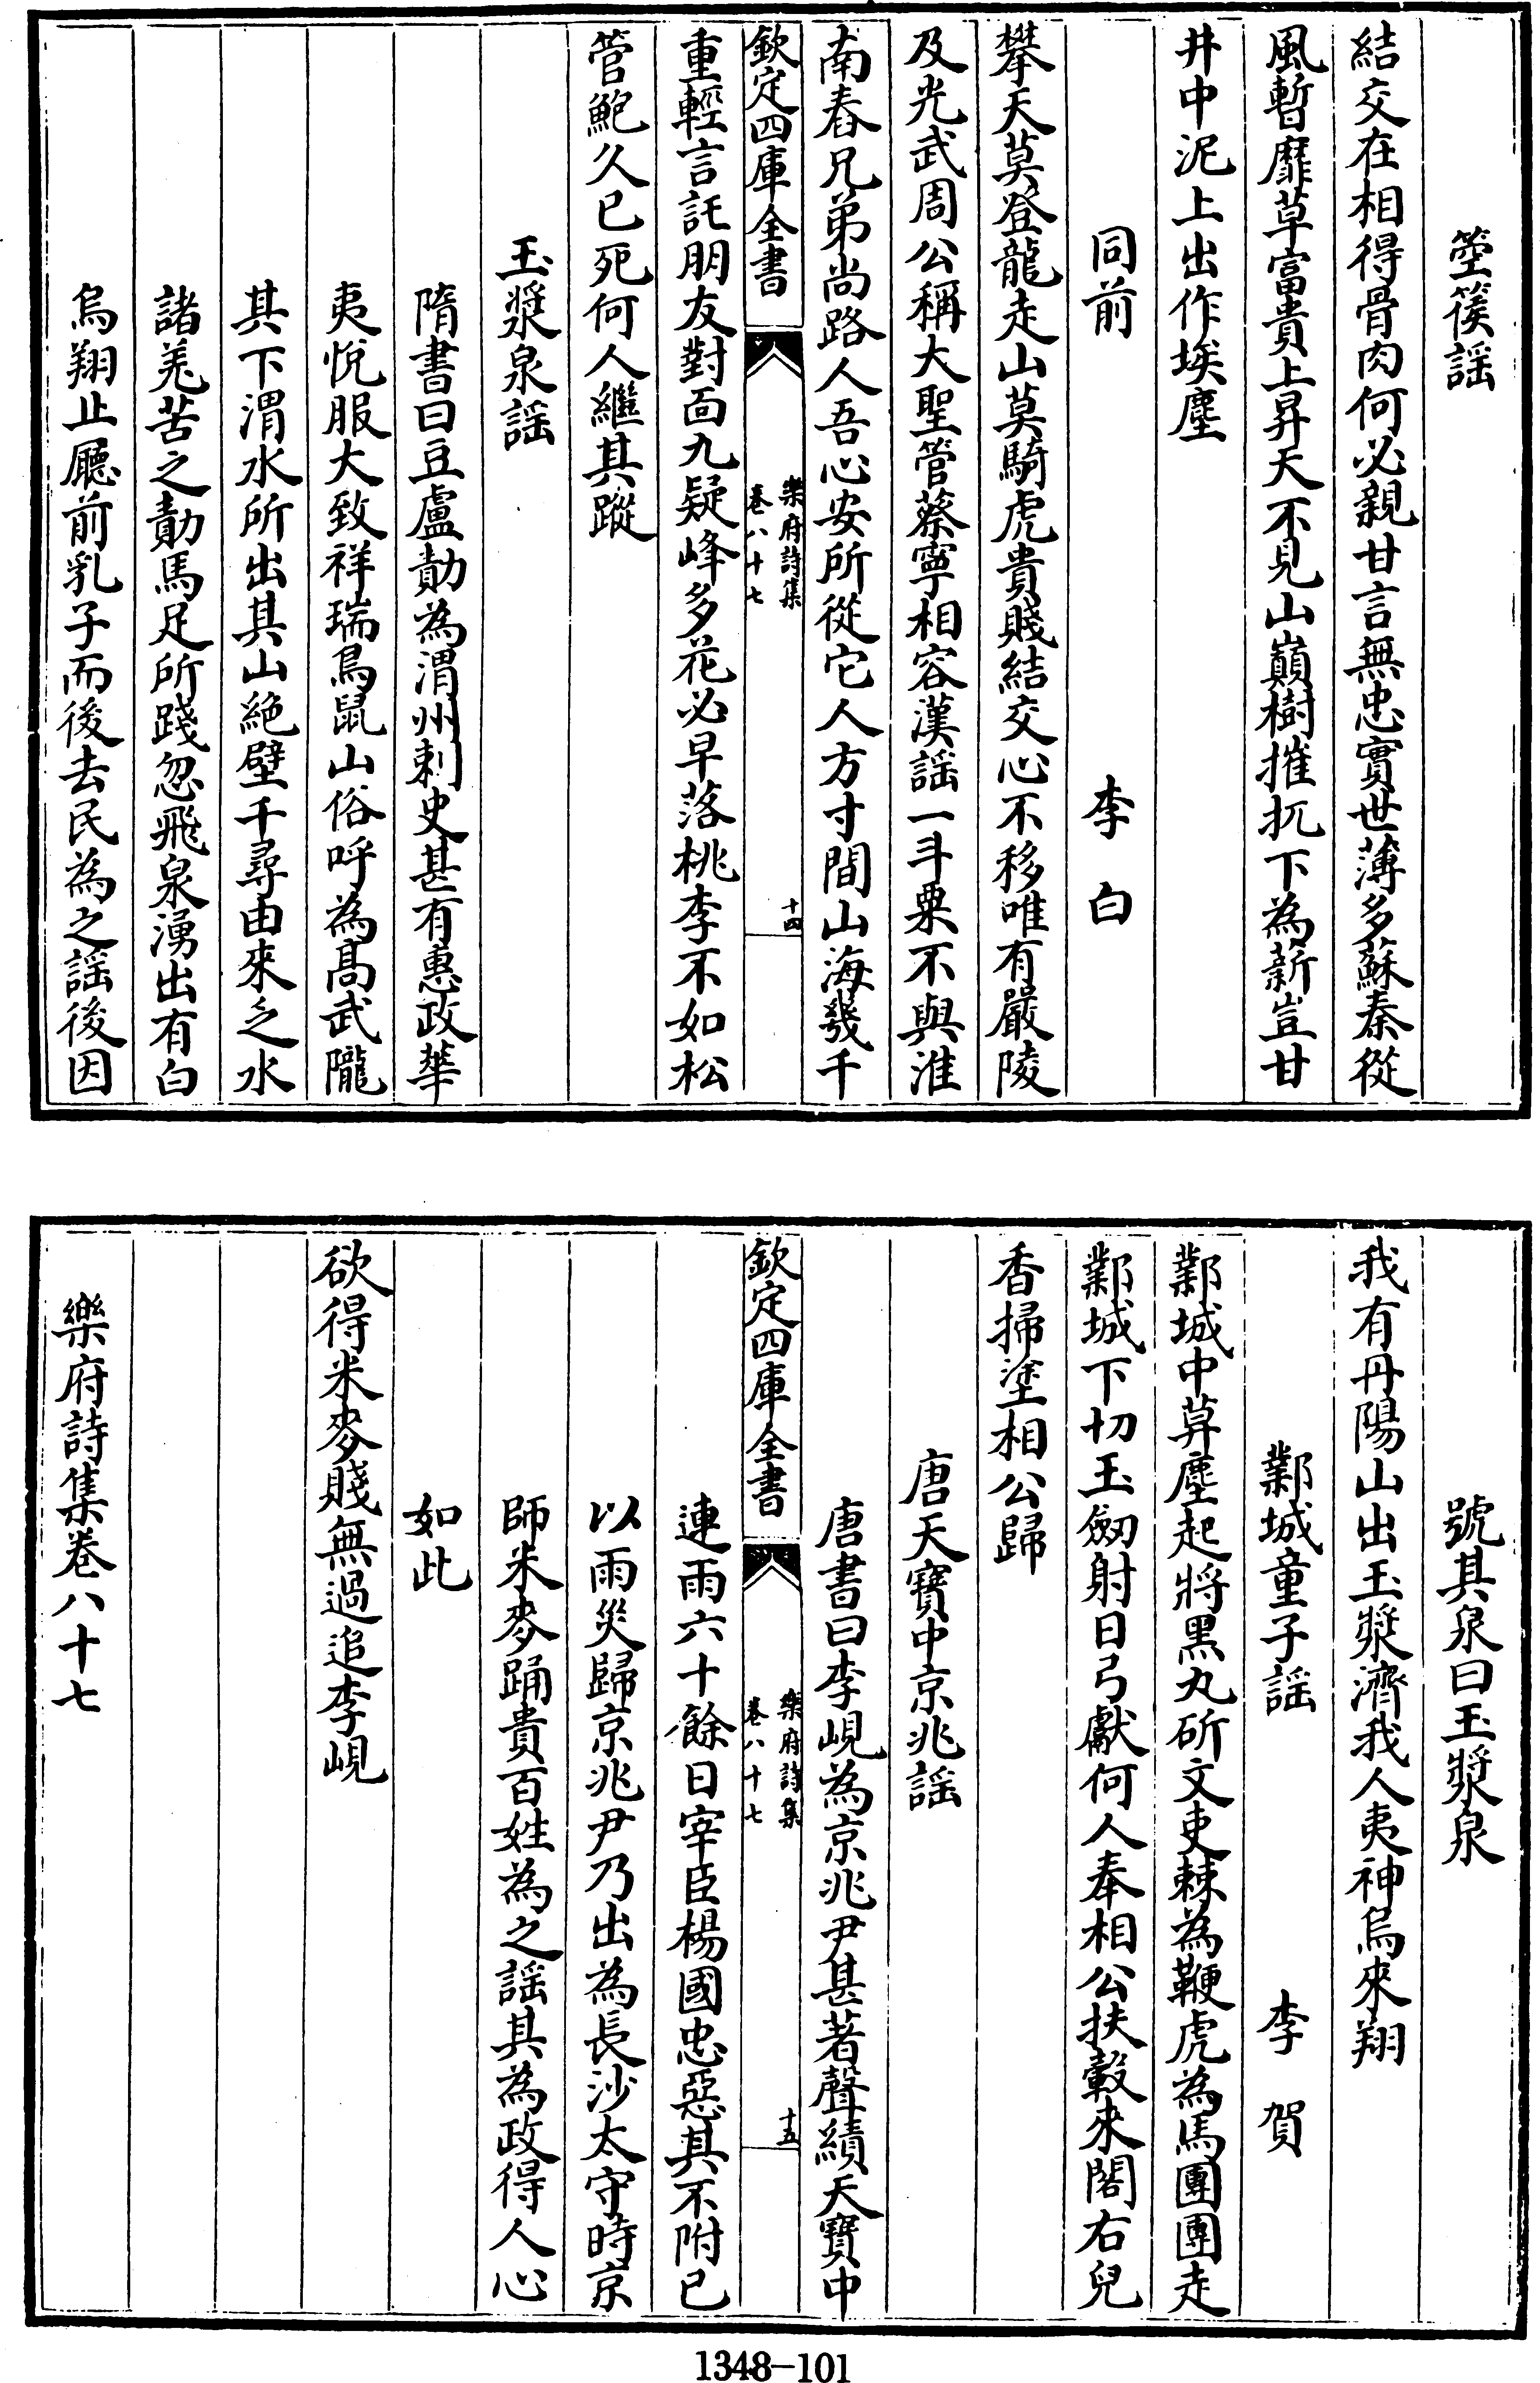 箜篌謡
結交在相得骨肉何必親甘言無忠實世薄多蘇秦從
風暫靡草富貴上昇天不見山巔樹摧扤下為薪豈甘
井中泥上出作埃塵
同前 李白
攀天莫登龍走山莫騎虎貴賤結交心不移唯有嚴陵
及光武周公稱大聖管蔡寧相容漢謡一斗粟不與淮
南舂兄弟尚路人吾心安所從它人方寸間山海幾千
欽定四庫全書 樂府詩集 卷八十七 十四
重輕言託朋友對面九疑峰多花必早落桃李不如松
管鮑久已死何人繼其蹤
玉漿泉謡
隋書曰豆盧勣為渭州刺史甚有惠政華
夷悅服大致祥瑞鳥鼠山俗呼為髙武隴
其下渭水所出其山絶壁千尋由來乏水
諸羌苦之勣馬足所踐忽飛泉湧出有白
烏翔止廳前乳子而後去民為之謡後因
號其泉曰玉漿泉
我有丹陽山出玉漿濟我人夷神烏來翔
鄴城童子謡 李賀
鄴城中莫塵起將黑丸斫文吏棘為鞭虎為馬團團走
鄴城下切玉劔射日弓獻何人奉相公扶轂來閣右兒
香掃塗相公歸
唐天寶中京兆謡
唐書曰李峴為京兆尹甚著聲績天寶中
欽定四庫全書 樂府詩集 卷八十七 十五
連雨六十餘日宰臣楊國忠惡其不附已
以雨災歸京兆尹乃出為長沙太守時京
師米麥踊貴百姓為之謡其為政得人心
如此
欲得米麥賤無過追李峴
樂府詩集卷八十七
1348-101